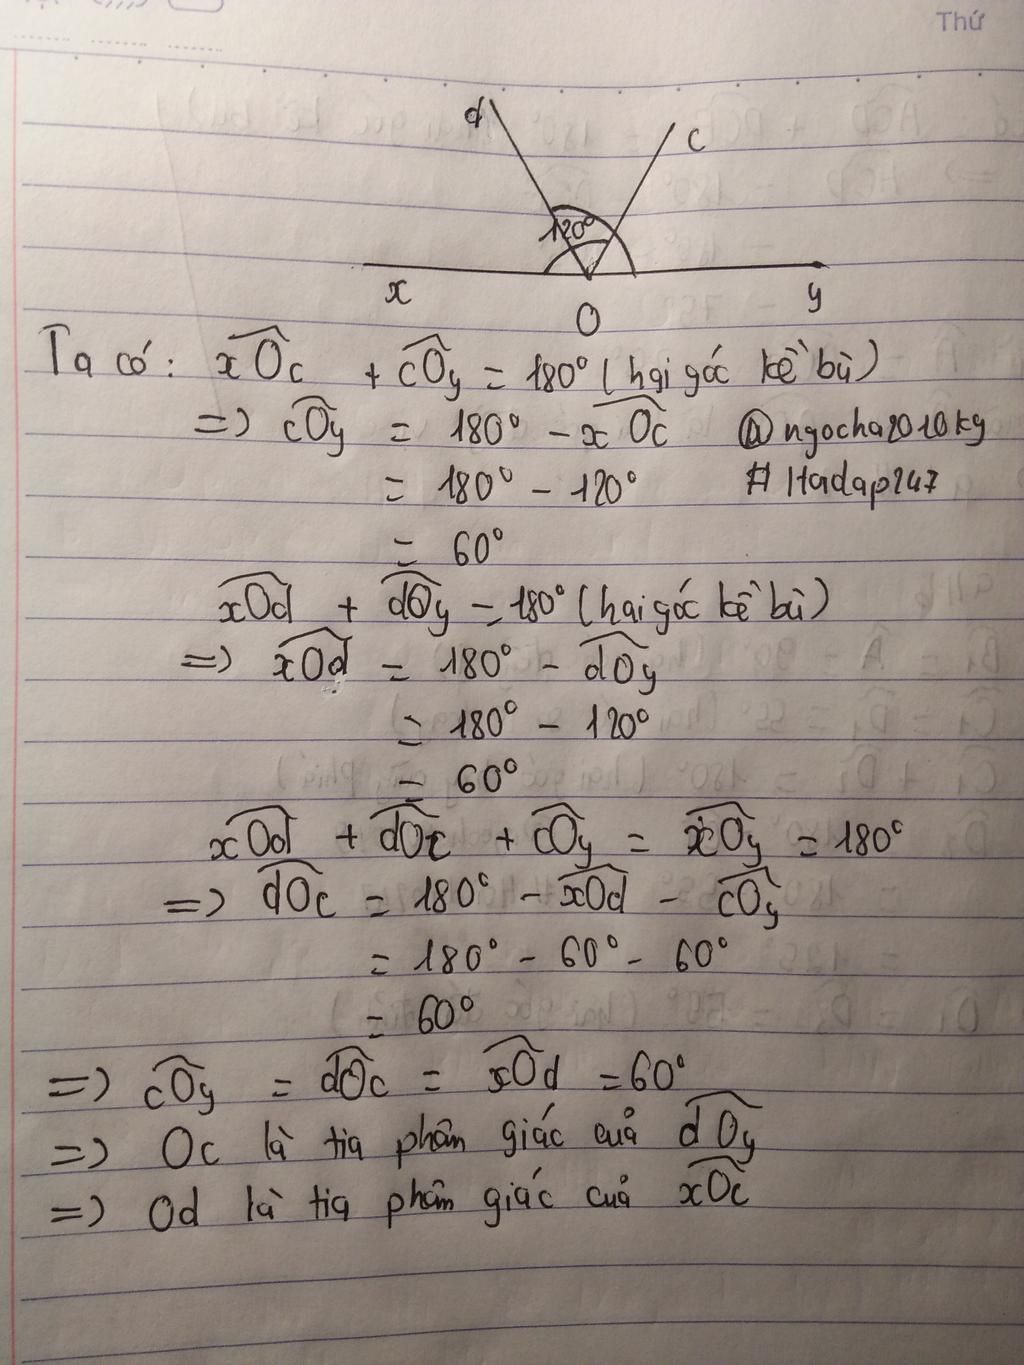 Thứ
d
c
120°
x
y
O
Ta có: xOc + cOy = 180° (hai góc kề bù)
=> cOy = 180° - xOc @ngocha2010kg
= 180° - 120° #Hadap247
= 60°
xOd + dOy = 180° (hai góc kề bù)
=> xOd = 180° - dOy
= 180° - 120°
= 60°
xOd + dOc + cOy = xOy = 180°
=> dOc = 180° - xOd - cOy
= 180° - 60° - 60°
= 60°
=> cOy = dOc = xOd = 60°
=> Oc là tia phân giác của dOy
=> Od là tia phân giác của xOc